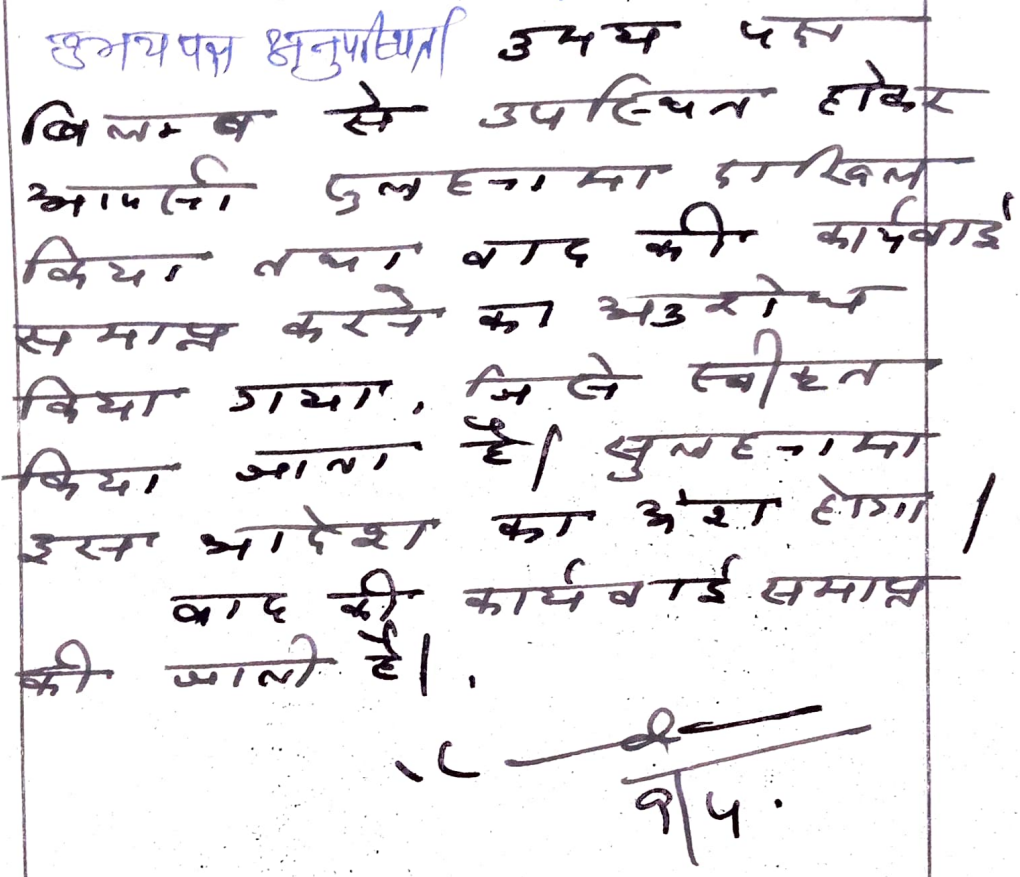 उभयपक्ष अनुपस्थित उभय पक्ष
बिलम्ब से उपस्थित होकर
आपसी सुलहनामा दाखिल
किया तथा वाद की कार्यवाई
समाप्त करने का अनुरोध
किया गया, जिसे स्वीकृत
किया जाता है। सुलहनामा
इस आदेश का अंश होगा।
वाद की कार्यवाई समाप्त
की जाती है।
९/५